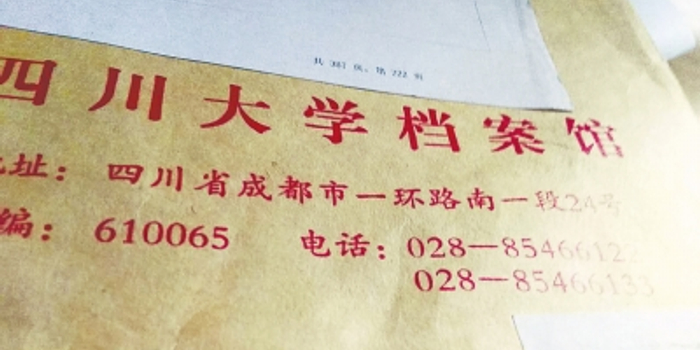 共 381 页，第 222 页
四川大学档案馆
地址：四川省成都市一环路南一段24号
编：610065 电话：028—85466122
028—85466133